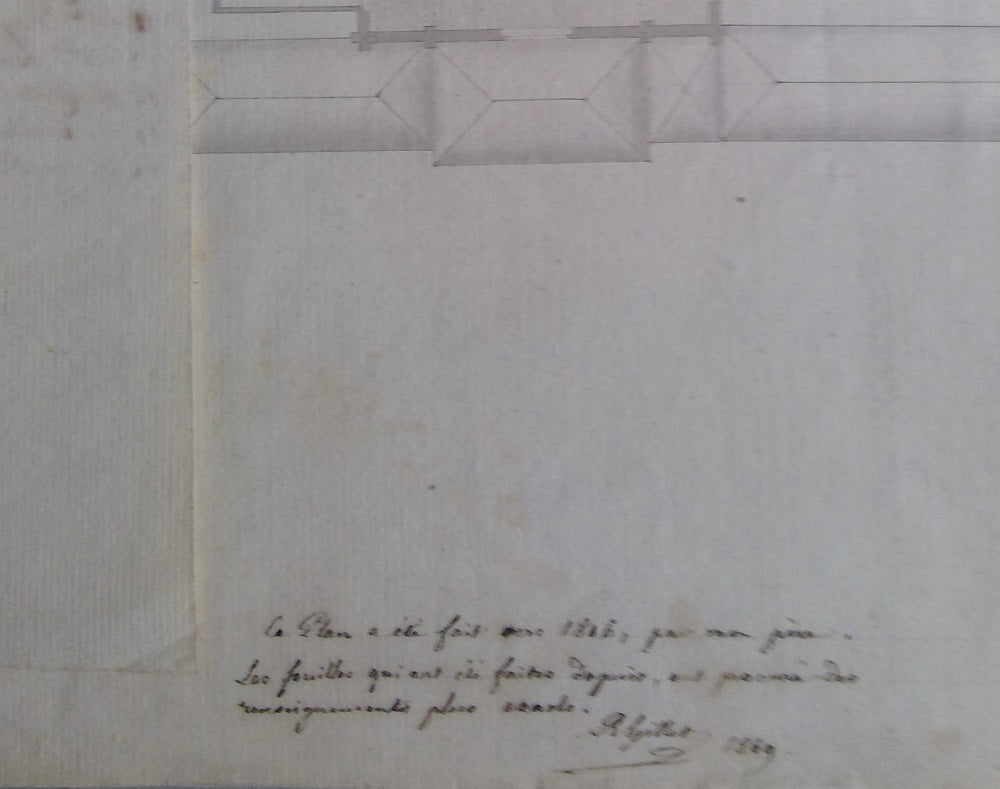 Ce Plan a été fait vers 1846, par mon père.
Les fouilles qui ont été faites depuis, ont permis des
renseignements plus exacts.
1889